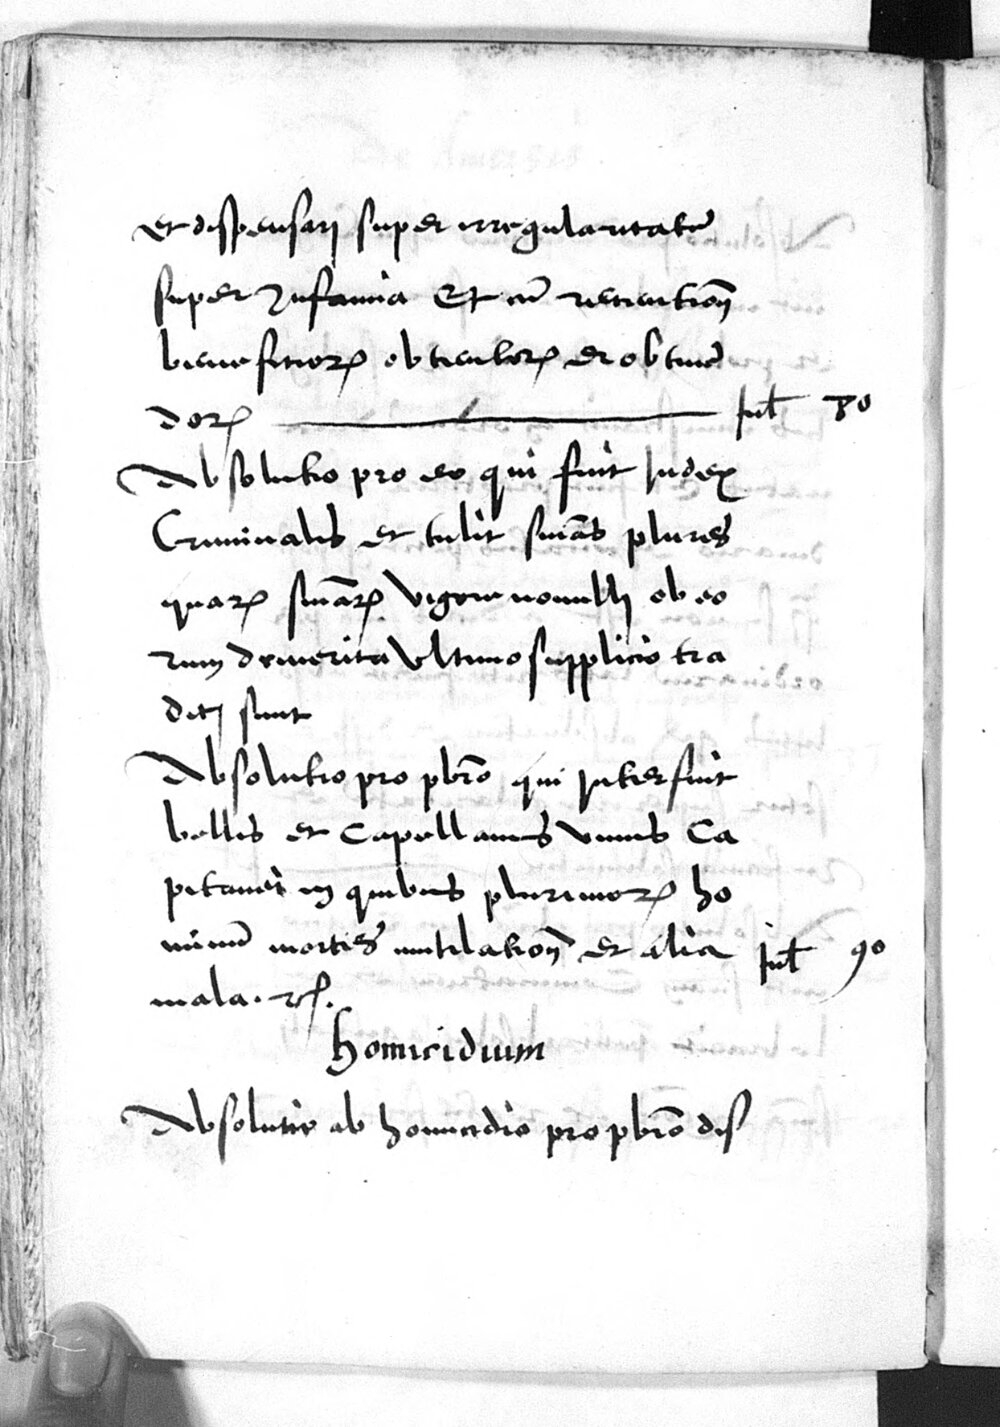 Et dispensari super irregularitate
super Infamia Et cũ retention̄
benefitior̨ obtentor̨ et obtinē
dor̨ Jul 80
Absolutio pro eo qui fuit Judex
Criminalis et tulit sniās plures
quar̨ sniār̨ vigore nonnulli ob eo
rum demerita Ultimo supplicio tra
diti sunt
Absolutio pro pbrō qui Interfuit
bellis et Capellanus vnius Ca
pitanei in quibus plurimor̨ ho
minū mortes mutilation̄ et alia Jul 90
mala.
homicidium
Absolutio ab homicidio pro pbrō dis